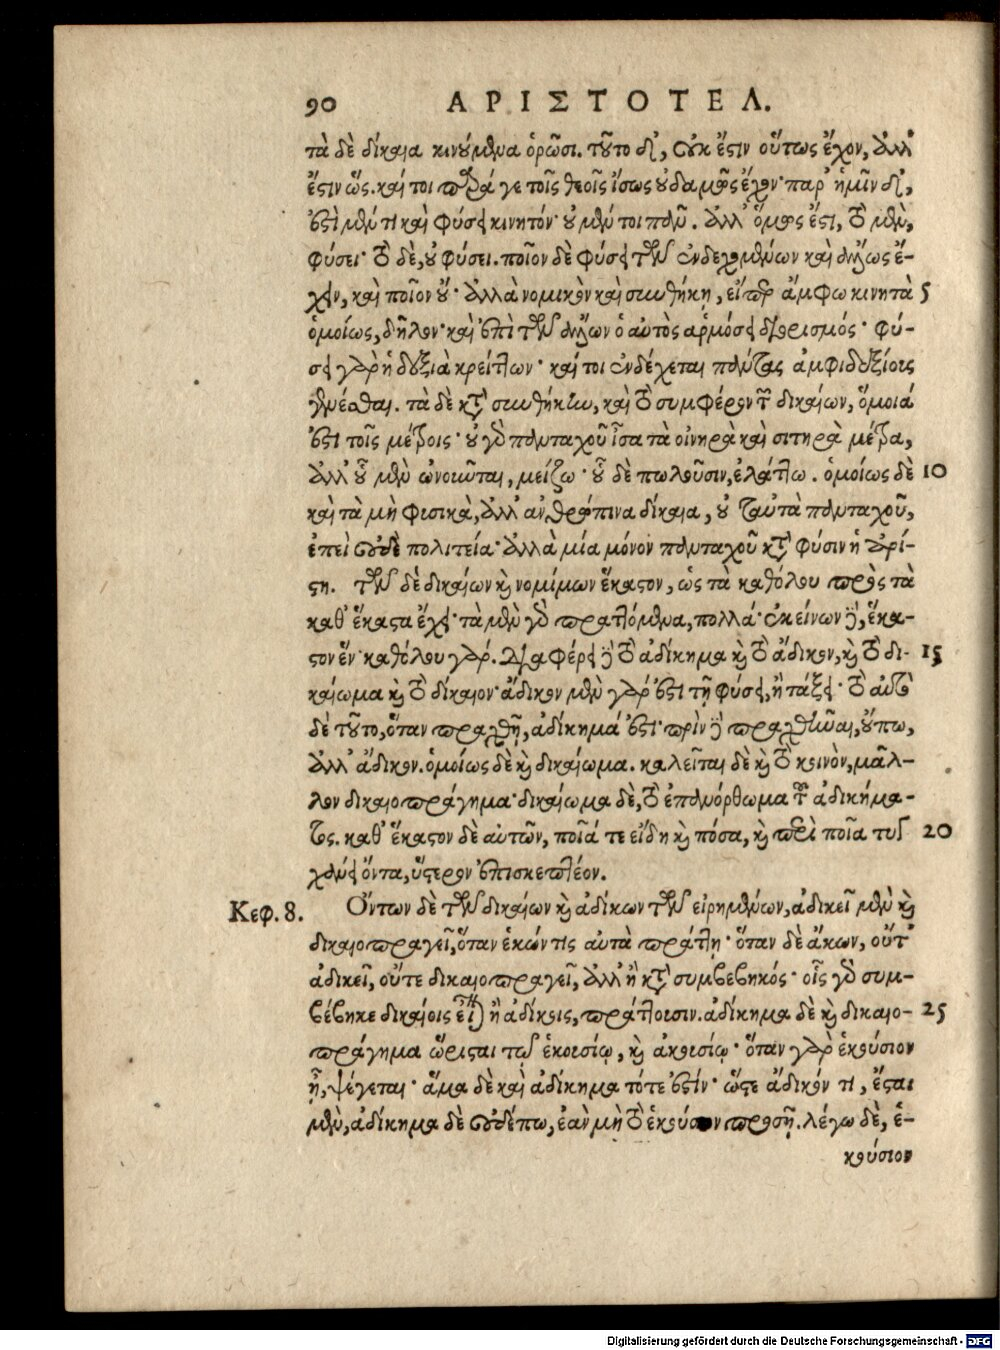 90 ΑΡΙΣΤΟΤΕΛ.
τὰ δὲ δίκαια κινούμενα ὁρῶσι. τοῦτο δ', οὐκ ἔστιν οὕτως ἔχον, ἀλλ'
ἔστιν ὥς. καί τοι παρά γε τοῖς θεοῖς ἴσως οὐδαμῶς ἔχον· παρ' ἡμῖν δ',
ἐστὶ μέν τι καὶ φύσει κινητόν· οὐ μέντοι πᾶν. ἀλλ' ὅμως ἔστι, τὸ μὲν,
φύσει· τὸ δὲ, οὐ φύσει. ποῖον δὲ φύσει τῶν ἐνδεχομένων καὶ ἄλλως ἔ-
χειν, καὶ ποῖον οὔ· ἀλλὰ νομικὸν καὶ συνθήκῃ, εἴπερ ἄμφω κινητὰ 5
ὁμοίως, δῆλον· καὶ ἐπὶ τῶν ἄλλων ὁ αὐτὸς ἁρμόσει διορισμός· φύ-
σει γὰρ ἡ δεξιὰ κρείττων· καί τοι ἐνδέχεται πάντας ἀμφιδεξίους
γενέσθαι. τὰ δὲ κατὰ συνθήκην, καὶ τὸ συμφέρον τῶν δικαίων, ὅμοιά
ἐστι τοῖς μέτροις· οὐ γὰρ πανταχοῦ ἴσα τὰ οἰνηρὰ καὶ σιτηρὰ μέτρα,
ἀλλ' οὗ μὲν ὠνοιῶται, μείζω· οὗ δὲ πωλοῦσιν, ἐλάττω. ὁμοίως δὲ 10
καὶ τὰ μὴ φισικὰ, ἀλλ' ἀνθρώπινα δίκαια, οὐ ταὐτὰ πανταχοῦ,
ἐπεὶ οὐδὲ πολιτεία· ἀλλὰ μία μόνον πανταχοῦ κατὰ φύσιν ἡ ἀρί-
στη. τῶν δὲ δικαίων καὶ νομίμων ἕκαστον, ὡς τὰ καθόλου πρὸς τὰ
καθ' ἕκαστα ἔχει· τὰ μὲν γὰρ πραττόμενα, πολλά· ἐκείνων δὲ, ἕκα-
στον ἕν· καθόλου γάρ. Διαφέρει δὲ τὸ ἀδίκημα καὶ τὸ ἄδικον, καὶ τὸ δι- 15
καίωμα καὶ τὸ δίκαιον· ἄδικον μὲν γάρ ἐστι τῇ φύσει, ἢ τάξει· τὸ αὐτὸ
δὲ τοῦτο, ὅταν πραχθῇ, ἀδίκημά ἐστι· πρὶν δὲ πραχθῆναι, οὔπω,
ἀλλ' ἄδικον. ὁμοίως δὲ καὶ δικαίωμα. καλεῖται δὲ καὶ τὸ κοινὸν, μᾶλ-
λον δικαιοπράγημα· δικαίωμα δὲ, τὸ ἐπανόρθωμα τοῦ ἀδικήμα-
τος. καθ' ἕκαστον δὲ αὐτῶν, ποῖά τε εἴδη καὶ πόσα, καὶ περὶ ποῖα τυγ- 20
χάνει ὄντα, ὕστερον ἐπισκεπτέον.
Κεφ. 8. Ὄντων δὲ τῶν δικαίων καὶ ἀδίκων τῶν εἰρημένων, ἀδικεῖ μὲν καὶ
δικαιοπραγεῖ, ὅταν ἑκών τις αὐτὰ πράττῃ· ὅταν δὲ ἄκων, οὔτ'
ἀδικεῖ, οὔτε δικαιοπραγεῖ, ἀλλ' ἢ κατὰ συμβεβηκός· οἷς γὰρ συμ-
βέβηκε δικαίοις εἶναι ἢ ἀδίκοις, πράττουσιν. ἀδίκημα δὲ καὶ δικαιο- 25
πράγημα ὥρισται τῷ ἑκουσίῳ, καὶ ἀκουσίῳ· ὅταν γὰρ ἑκούσιον
ᾖ, ψέγεται· ἅμα δὲ καὶ ἀδίκημα τότε ἐστίν· ὥστε ἄδικόν τι, ἔσται
μὲν, ἀδίκημα δὲ οὐδέπω, ἐὰν μὴ τὸ ἑκούσιον προσῇ. λέγω δὲ, ἑ-
κούσιον
Digitalisierung gefördert durch die Deutsche Forschungsgemeinschaft - DFG